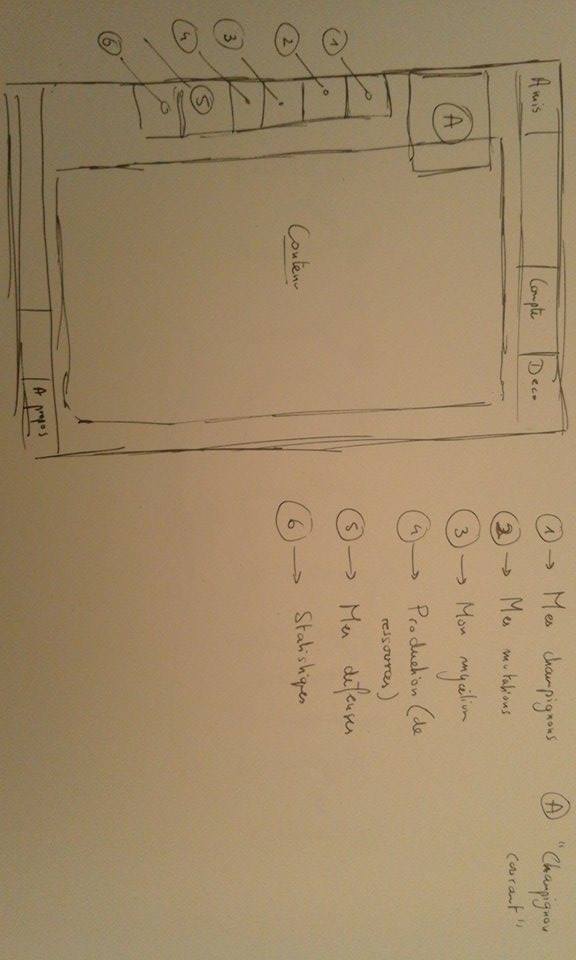 Amis
Compte
Deco
A
1
2
3
4
5
6
Contenu
A propos
1 → Mes champignons
2 → Mes mutations
3 → Mon mycélium
4 → Production (de
ressources)
5 → Mes défenses
6 → Statistiques
A "Champignon
courant"